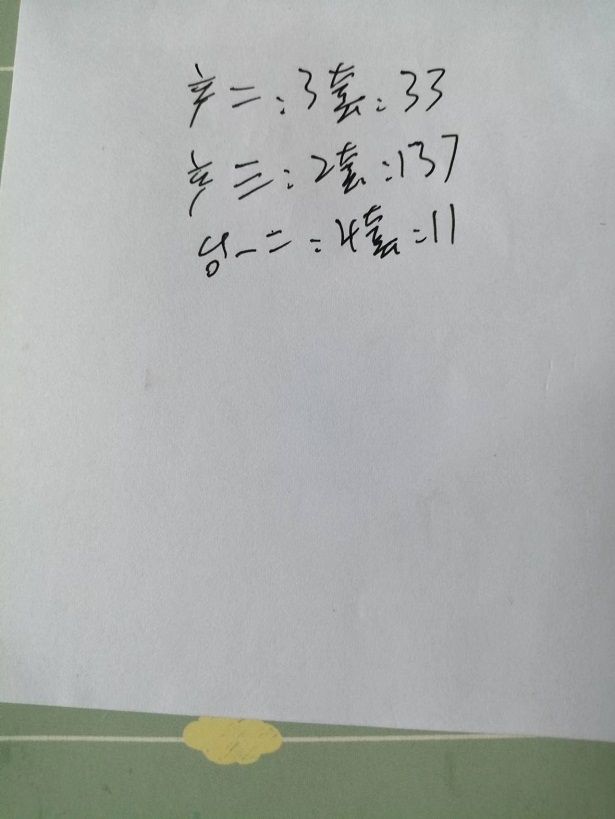 辛二:3套:33
辛三:2套:137
一二:4套:11